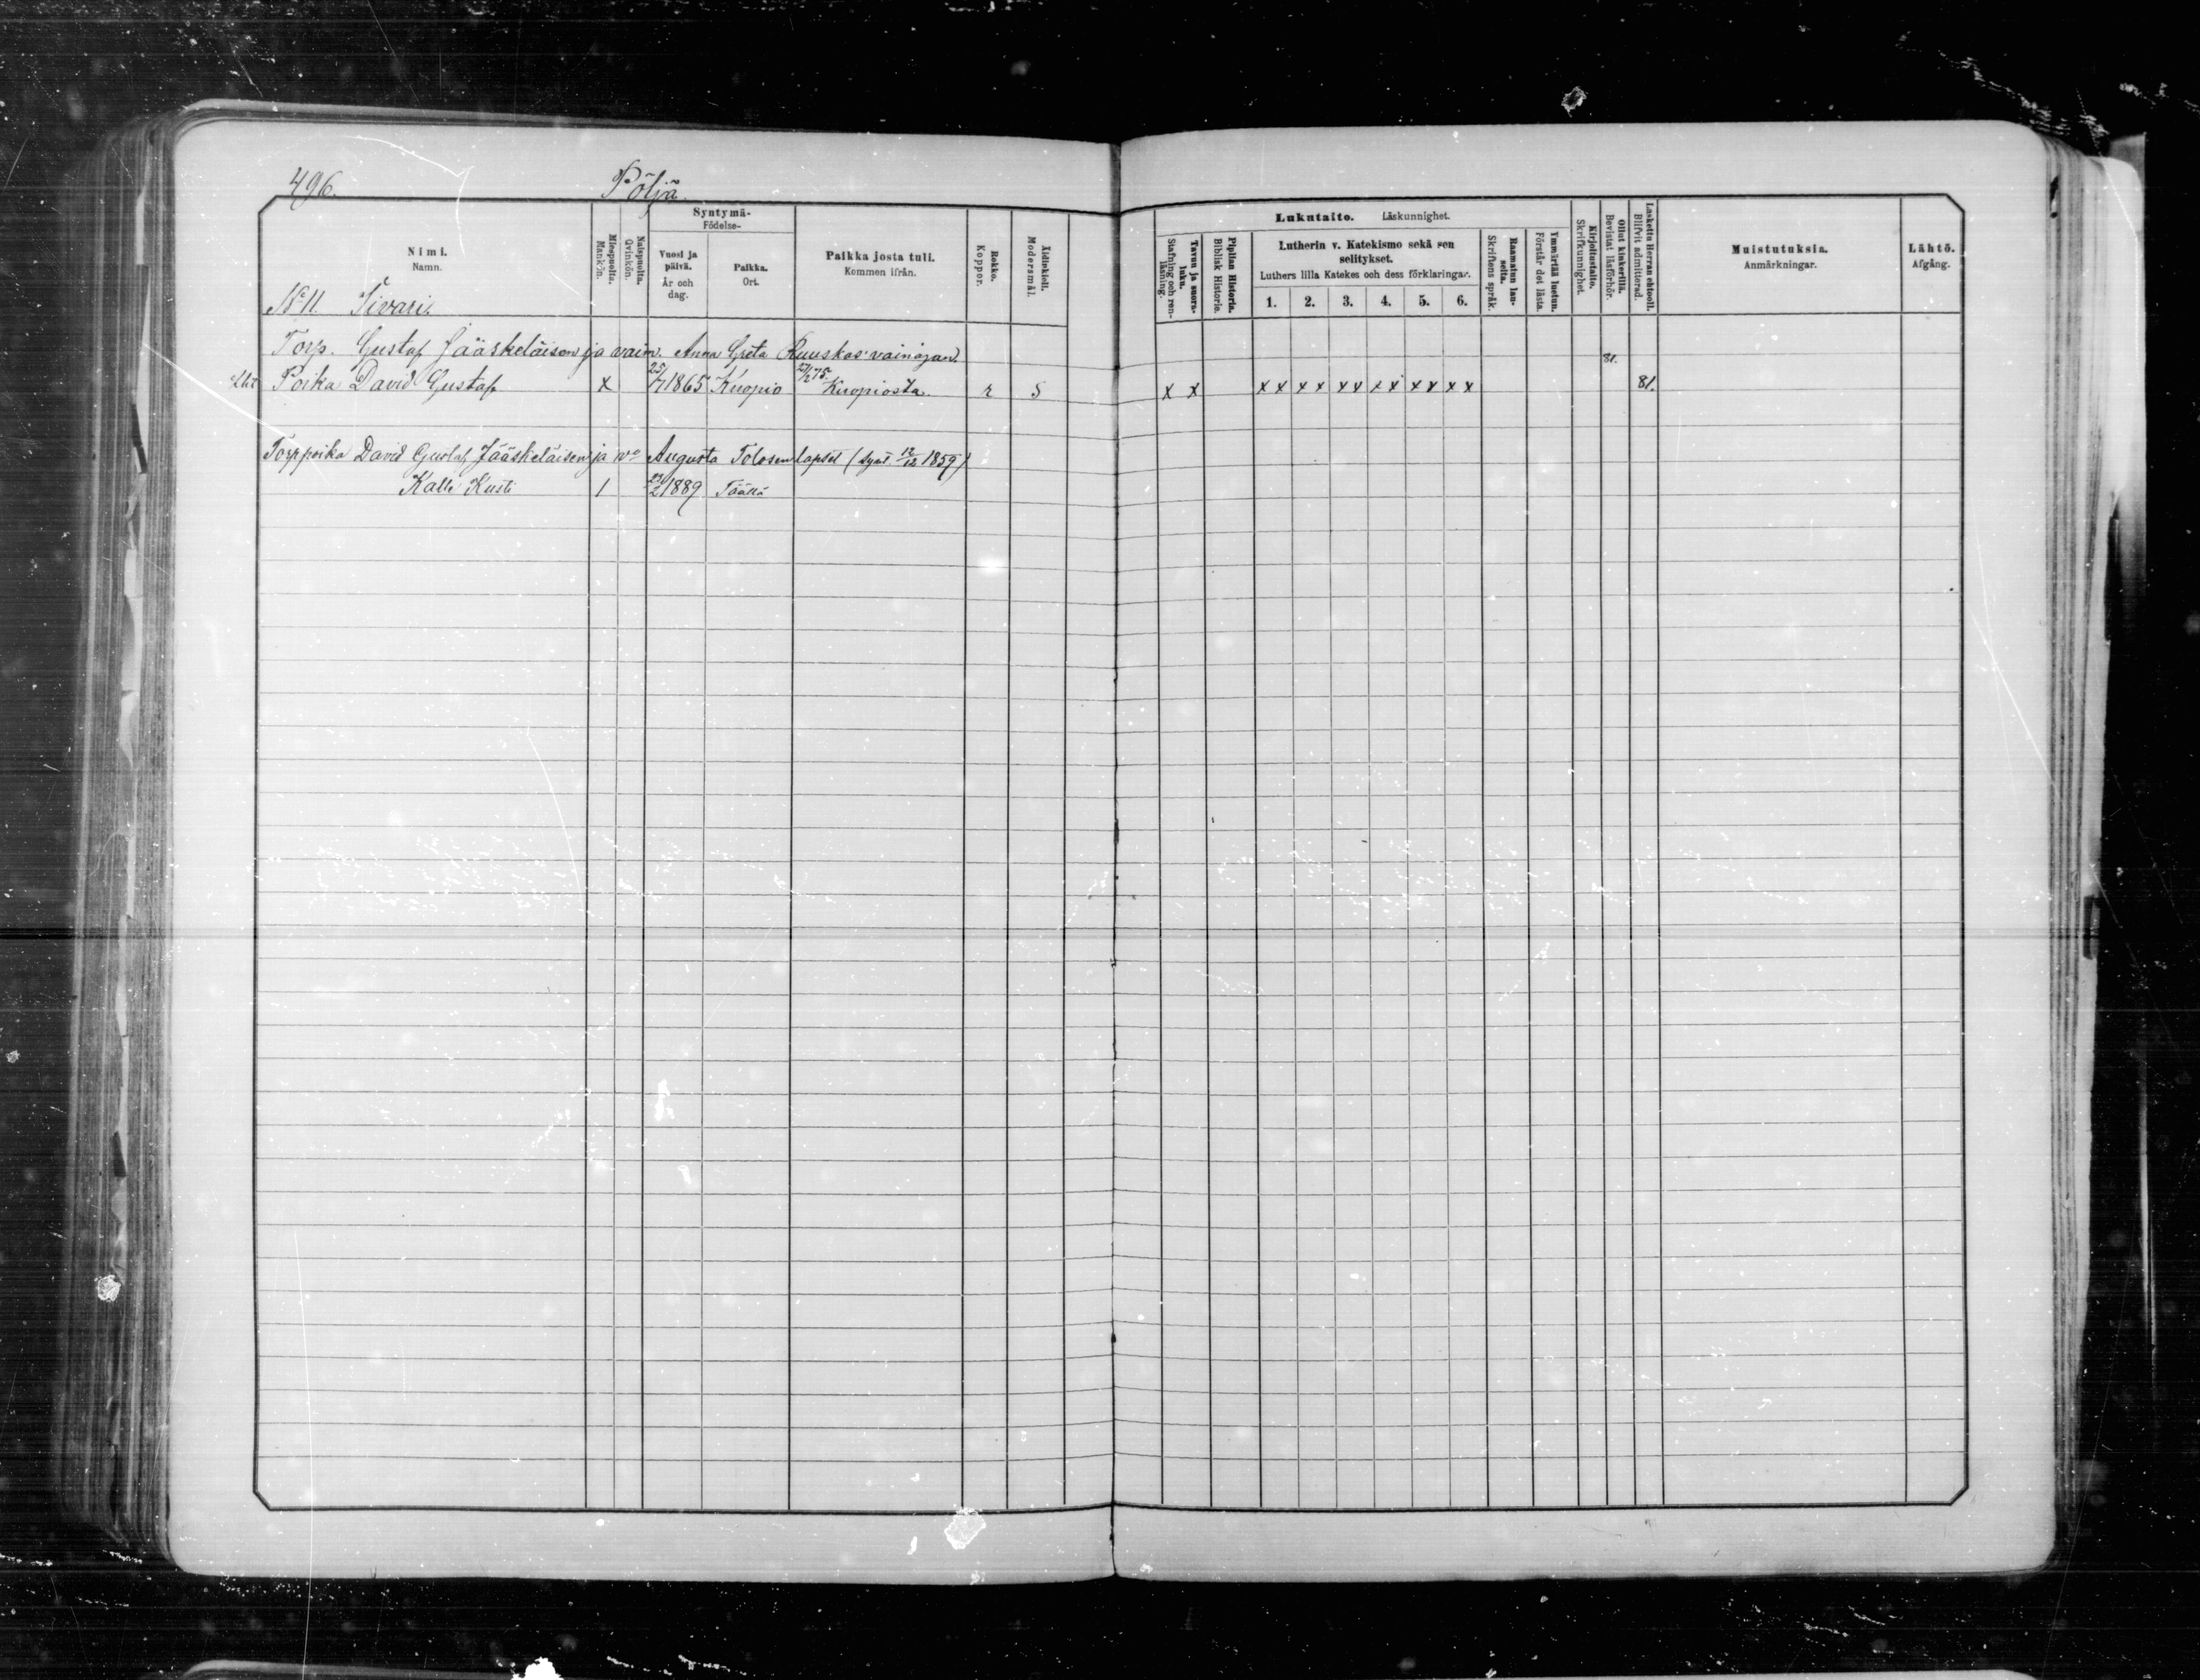 496. Pöljä.
Nimi. Namn.
Miespuolta. Mankön.
Naispuolta. Qvinkön.
Syntymä- Födelse-
Vuosi ja päivä. År och dag.
Paikka. Ort.
Paikka josta tuli. Kommen ifrån.
Rokko. Koppor.
Äidinkieli. Modersmål.
Lukutaito. Läskunnighet.
Tavuu ja suora-luku. Stafning och ren-läsning.
Piplian Historia. Biblisk Historie.
Lutherin v. Katekismo sekä sen selitykset.
Luthers lilla Katekes och dess förklaringar.
1. 2. 3. 4. 5. 6.
Raamatun lau-seita. Skriftens språk.
Ymmärtää luetun. Förstår det lästa.
Kirjoitustaito. Skrifkunnighet.
Ollut kinkerillä. Bevistat läsförhör.
Laskettu Herran ehtooll. Blifvit admitterad.
Muistutuksia. Anmärkningar.
Lähtö. Afgång.
No 11. Tivari.
Torp. Gustaf Jääskeläisen ja vaim. Anna Greta Ruuskas' vainajan. 81.
Poika David Gustaf x 25/7 1865 Kuopio 21/2 75. Kuopiosta. r S x x x x x x x x x x x x x x 81.
Torppoika David Gustaf Jääskeläisen ja wo Augusta Tolosen lapset (synt. 12/12 1859)
Kalle Kusti 1 2 1889 Täällä